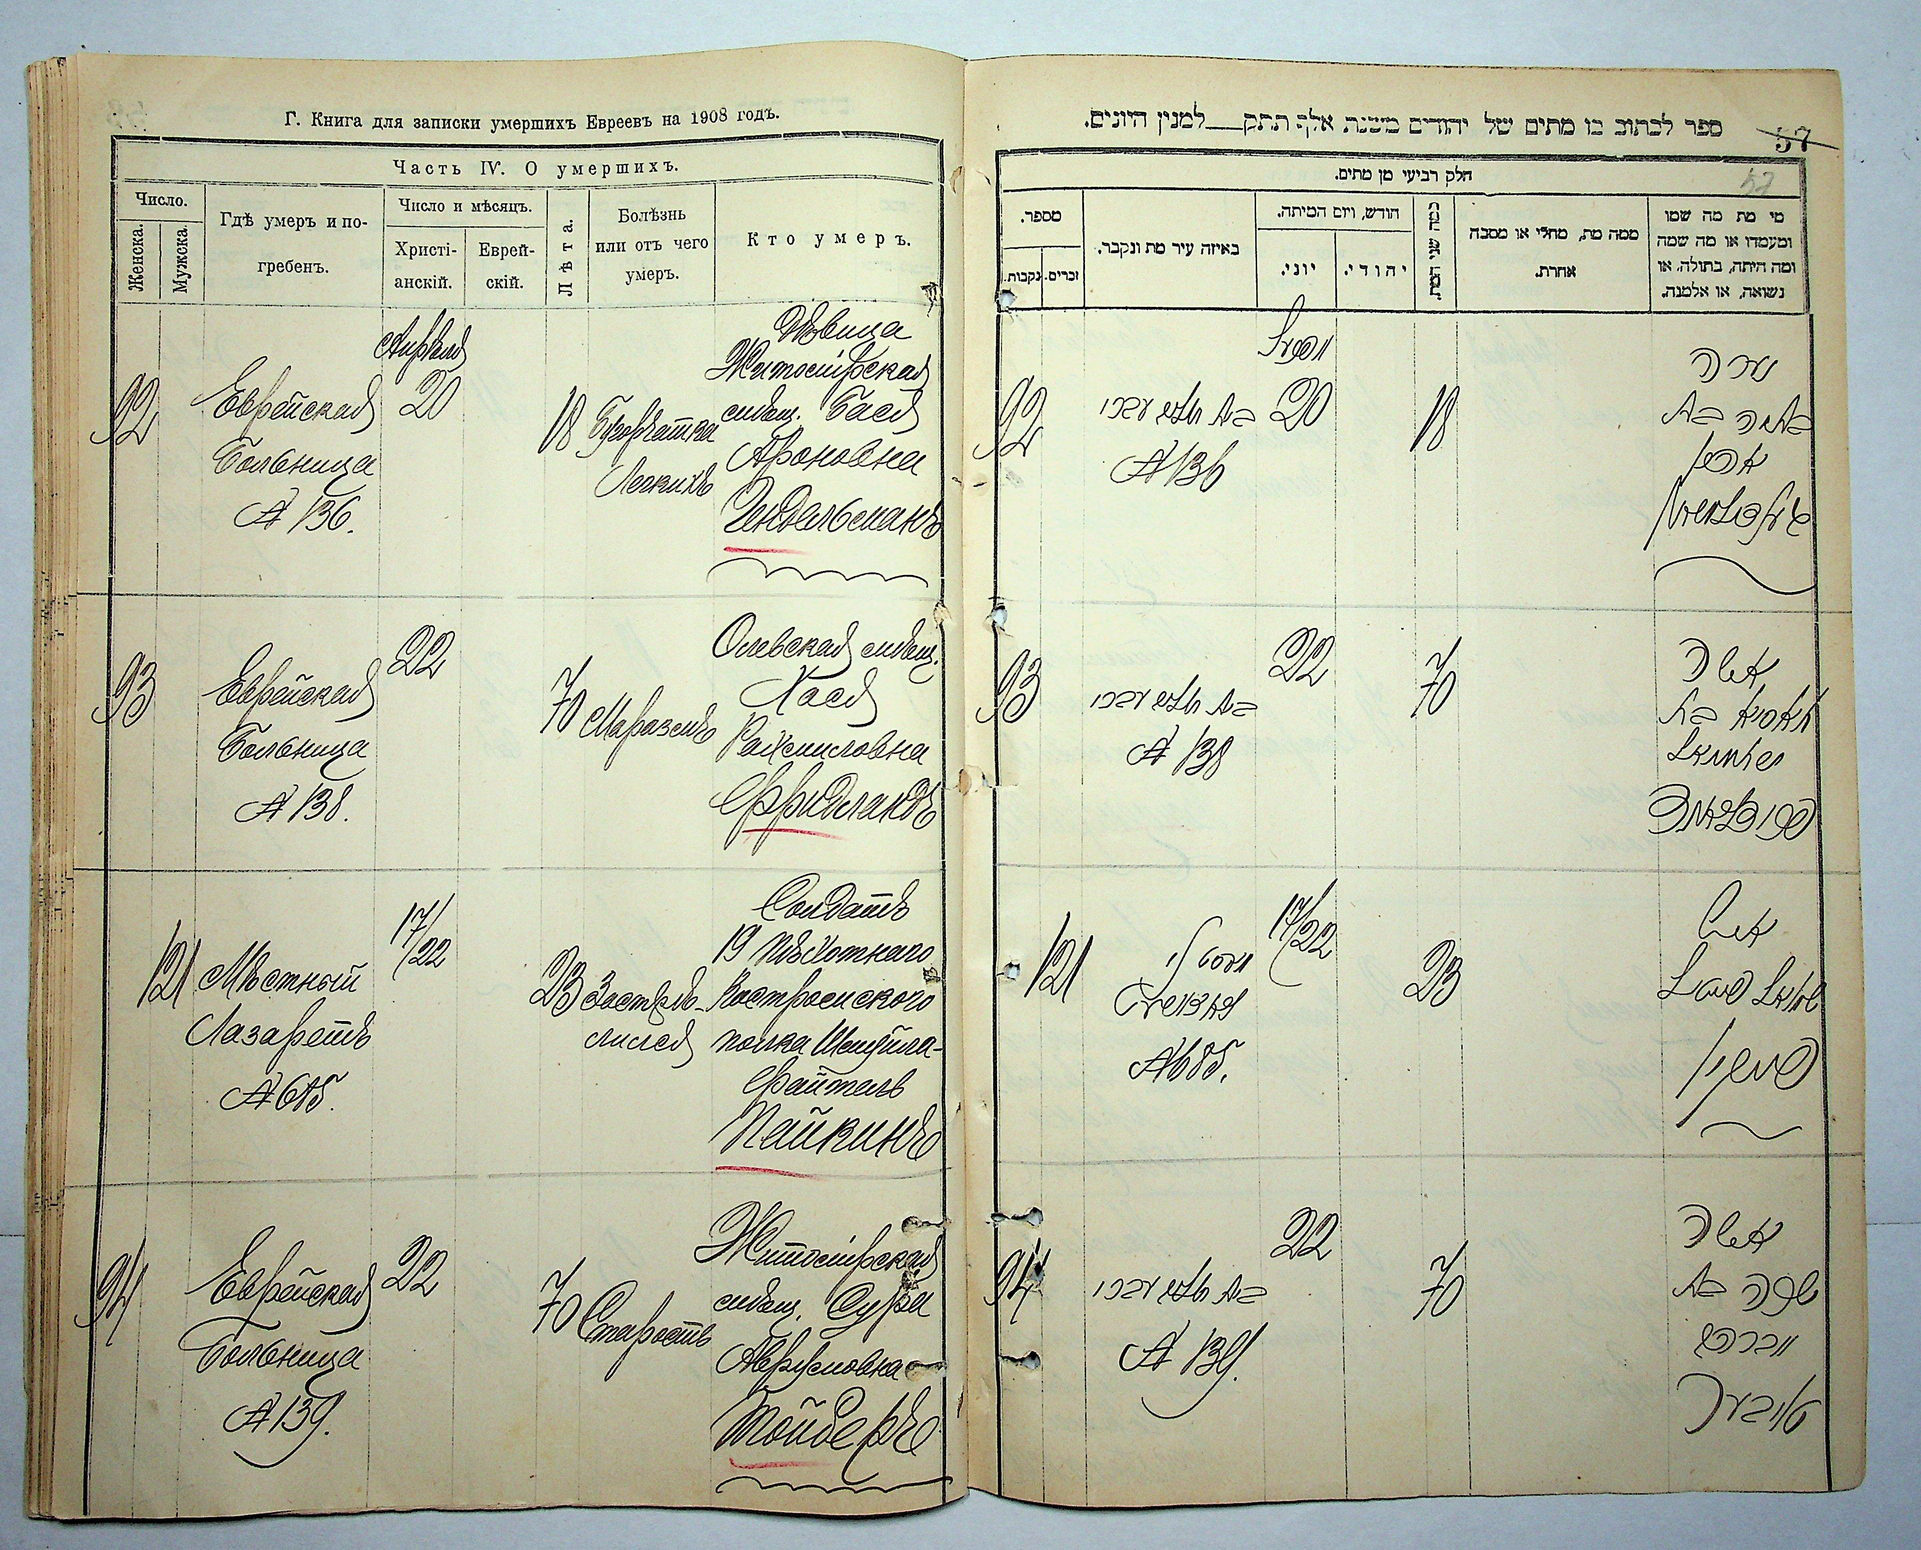 Г. Книга для записки умершихъ Евреевъ на 1908 годъ.
Часть IV. О умершихъ.
Число.
Женска.
Мужска.
Гдѣ умеръ и по-
гребенъ.
Число и мѣсяцъ.
Христі-
анскій.
Еврей-
скій.
Лѣта.
Болѣзнь
или отъ чего
умеръ.
Кто умеръ.
92
Еврейская
Больница
№ 136.
Апрѣля
20
18
Бугорчатка
Легкихъ
Дѣвица
Житомірская
мѣщ. Бася
Ароновна
Гендельсманъ
93
Еврейская
Больница
№ 138.
22
70
Маразмъ
Олевская мѣщ.
Хася
Рахмиловна
Фридландъ
121
Мѣстный
Лазаретъ
№ 685.
17/22
23
Застрѣ-
лился
Солдатъ
19 пѣхотнаго
Костромского
полка Шмуйла-
Файтель
Пайкинъ
94
Еврейская
Больница
№ 139.
22
70
Старость
Житомірская
мѣщ. Сура
Аврумовна
Тойберъ
ספר לכתוב בו מתים של יהודים משנת אלף תתק למנין היונים.
57
חלק רביעי מן מתים.
מי מת מה שמו
ומעמדו או מה שמה
ומה היתה, בתולה, או
נשואה, או אלמנה.
ממה מת, מחלי או מסבה
אחרת.
כמה שני המת.
חודש, ויום המיתה.
יהודי.
יוני.
באיזה עיר מת ונקבר.
מספר.
זכרים.
נקבות.
נערה
באסיה בת
אהרן
18
20
№ 136
92
אשה
בת
פרידלאנד
70
22
№ 138
93
איש
שמואל פייטל
פייקין
23
17/22
№ 685.
121
אשה
שרה בת
טויבער
70
22
№ 139.
94